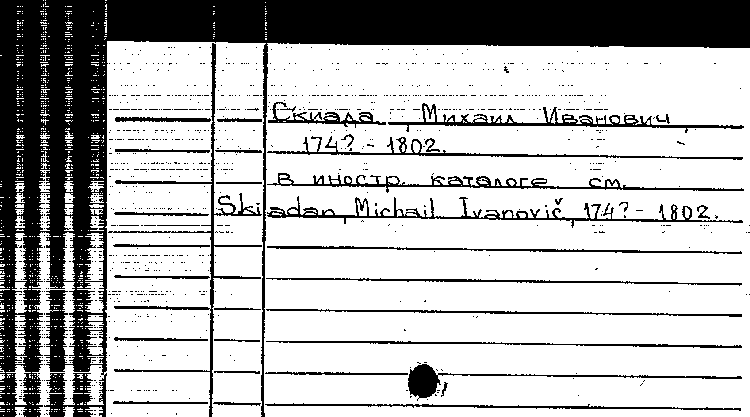 Скиада, Михаил Иванович,
174? - 1802.
в иностр. каталоге см.
Skiadan, Michail Ivanovič, 174? - 1802.